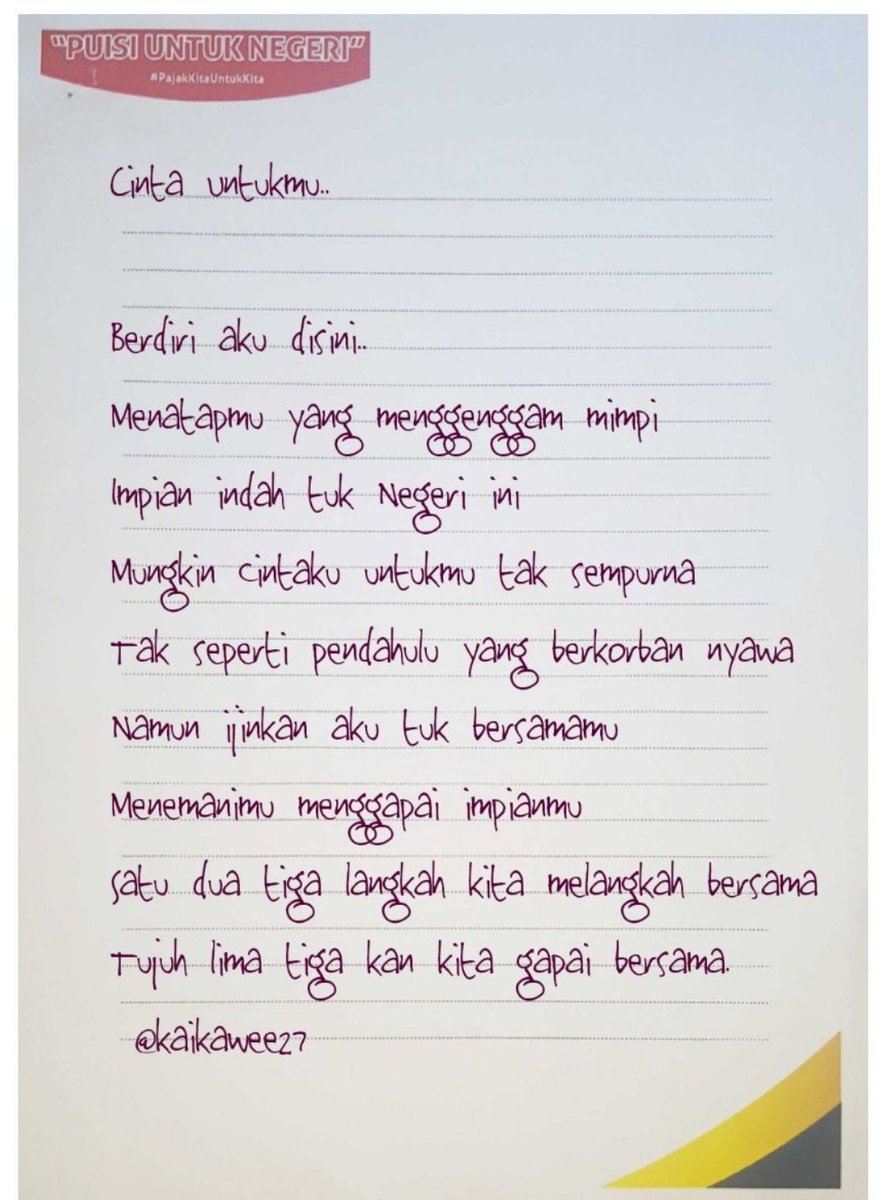 "PUISI UNTUK NEGERI"
#PajakKitaUntukKita
Cinta untukmu..
Berdiri aku disini..
Menatapmu yang menggenggam mimpi
Impian indah tuk Negeri ini
Mungkin cintaku untukmu tak sempurna
Tak seperti pendahulu yang berkorban nyawa
Namun ijinkan aku tuk bersamamu
Menemanimu menggapai impianmu
Satu dua tiga langkah kita melangkah bersama
Tujuh lima tiga kan kita gapai bersama.
@kaikawee27